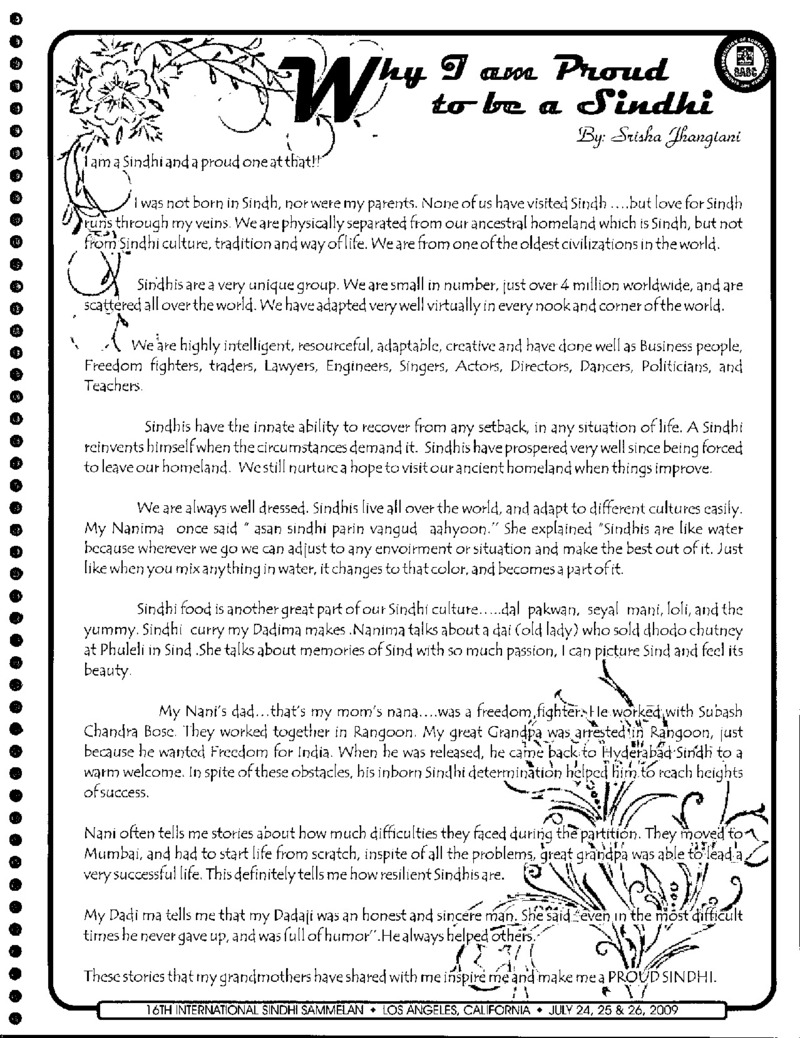 Why I am Proud
to be a Sindhi
SABC
By: Srisha Jhangiani
I am a Sindhi and a proud one at that!!
I was not born in Sindh, nor were my parents. None of us have visited Sindh ....but love for Sindh
runs through my veins. We are physically separated from our ancestral homeland which is Sindh, but not
from Sindhi culture, tradition and way of life. We are from one of the oldest civilizations in the world.
Sindhis are a very unique group. We are small in number, just over 4 million worldwide, and are
scattered all over the world. We have adapted very well virtually in every nook and corner of the world.
We are highly intelligent, resourceful, adaptable, creative and have done well as Business people,
Freedom fighters, traders, Lawyers, Engineers, Singers, Actors, Directors, Dancers, Politicians, and
Teachers.
Sindhis have the innate ability to recover from any setback, in any situation of life. A Sindhi
reinvents himself when the circumstances demand it. Sindhis have prospered very well since being forced
to leave our homeland. We still nurture a hope to visit our ancient homeland when things improve.
We are always well dressed. Sindhis live all over the world, and adapt to different cultures easily.
My Nanima once said " asan sindhi parin vangud aahyoon." She explained "Sindhis are like water
because wherever we go we can adjust to any envoirment or situation and make the best out of it. Just
like when you mix anything in water, it changes to that color, and becomes a part of it.
Sindhi food is another great part of our Sindhi culture.....dal pakwan, seyal mani, loli, and the
yummy. Sindhi curry my Dadima makes .Nanima talks about a dai (old lady) who sold dhodo chutney
at Phuleli in Sind .She talks about memories of Sind with so much passion, I can picture Sind and feel its
beauty.
My Nani's dad...that's my mom's nana....was a freedom fighter. He worked with Subash
Chandra Bose. They worked together in Rangoon. My great Grandpa was arrested in Rangoon, just
because he wanted Freedom for India. When he was released, he came back to Hyderabad Sindh to a
warm welcome. In spite of these obstacles, his inborn Sindhi determination helped him to reach heights
of success.
Nani often tells me stories about how much difficulties they faced during the partition. They moved to
Mumbai, and had to start life from scratch, inspite of all the problems, great grandpa was able to lead a
very successful life. This definitely tells me how resilient Sindhis are.
My Dadi ma tells me that my Dadaji was an honest and sincere man. She said "even in the most difficult
times he never gave up, and was full of humor".He always helped others.
These stories that my grandmothers have shared with me inspire me and make me a PROUD SINDHI.
16TH INTERNATIONAL SINDHI SAMMELAN • LOS ANGELES, CALIFORNIA • JULY 24, 25 & 26, 2009